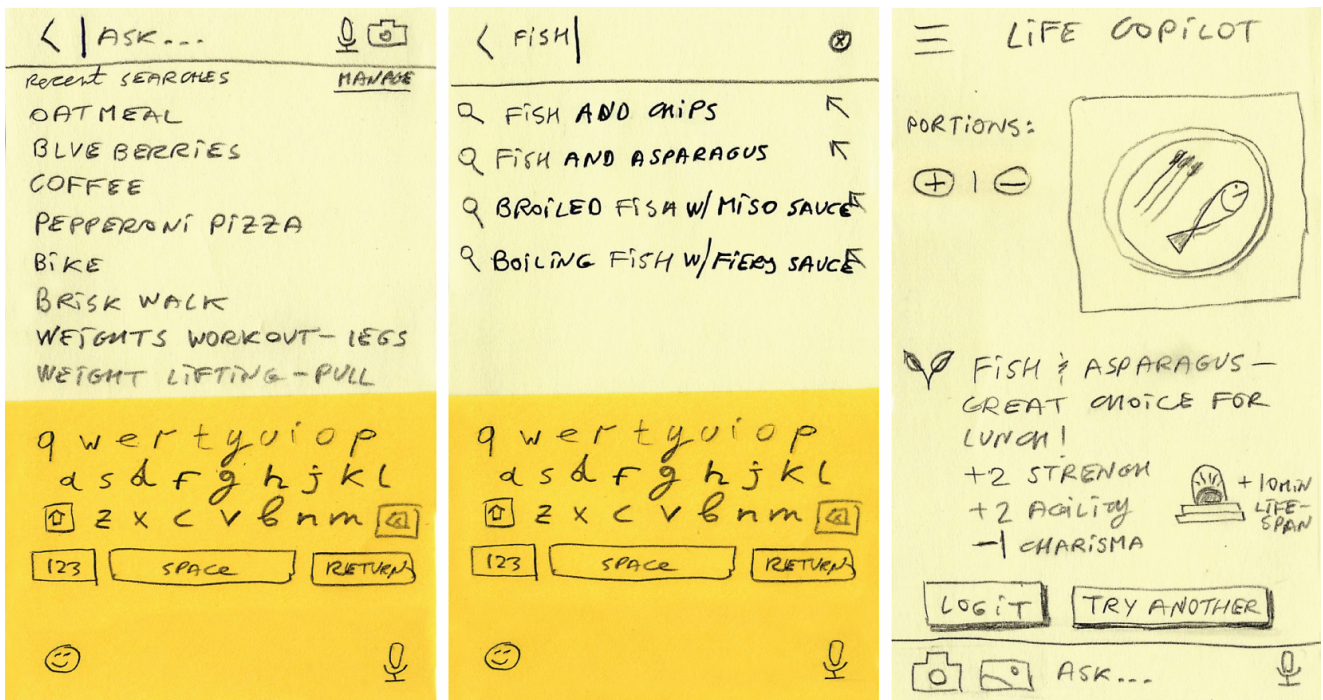 < ASK...
Recent SEARCHES MANAGE
OATMEAL
BLUEBERRIES
COFFEE
PEPPERONI PIZZA
BIKE
BRISK WALK
WEIGHTS WORKOUT - LEGS
WEIGHT LIFTING - PULL
q w e r t y u i o p
a s d f g h j k l
z x c v b n m
123 SPACE RETURN
< FISH
FISH AND CHIPS
FISH AND ASPARAGUS
BROILED FISH W/ MISO SAUCE
BOILING FISH W/ FIERY SAUCE
q w e r t y u i o p
a s d f g h j k l
z x c v b n m
123 SPACE RETURN
LIFE COPILOT
PORTIONS:
+ 1 -
FISH & ASPARAGUS -
GREAT CHOICE FOR
LUNCH!
+2 STRENGH
+2 AGILITY
-1 CHARISMA
+10MIN
LIFE-
SPAN
LOG IT TRY ANOTHER
ASK...